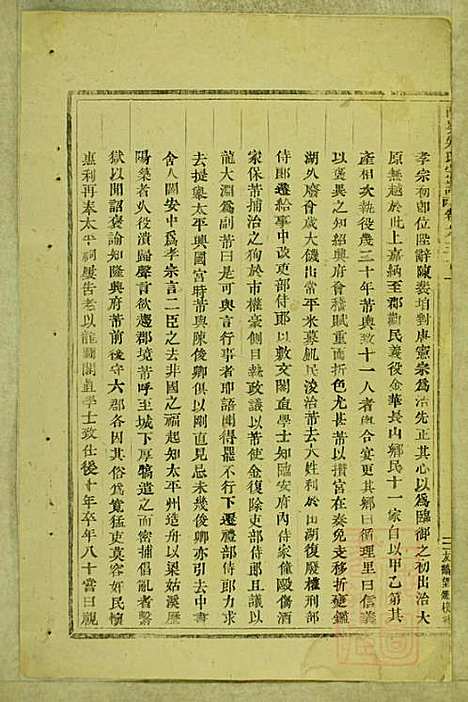 孝宗初即位陛辭陳裴垍對唐憲宗為治先正其心以為臨御之初出治大
原無越於此上嘉納至郡勸民義役金華長山鄉民十一家自以甲乙第其
產相次執役幾三十年芾輿致十一人者與合宴更其鄉曰循理里曰信義
以褒異之知紹興府會稽賦重而折色尤甚芾以攢宮在奏免支移折變鑑
湖久廢會歲大饑出常平米募飢民浚治芾去大姓利於田湖復廢權刑部
侍郎遷給事中改吏部侍郎以敷文閣直學士知臨安府內侍家僮毆傷酒
家保芾捕治之狗於市權豪側目執政議以芾使金復除吏部侍郎且議以
龍大淵為副芾曰是可與言行事者耶語聞得罷不行下遷禮部侍郎力求
去提舉太平興國宮時芾與陳俊卿俱以剛直見忌未幾俊卿亦引去中書
舍人閻安中為孝宗言二臣之去非國之福起知太平州造舟以梁姑溪歷
陽築者久役潰歸聲言欲趨郡境芾呼至城下厚犒遣之而密捕倡亂者繫
獄以聞詔褒諭知隆興府芾前後守六郡各因其俗為寬猛吏莫容奸民懷
惠利再奉太平祠屢告老以龍圖閣直學士致仕後十年卒年八十嘗曰視